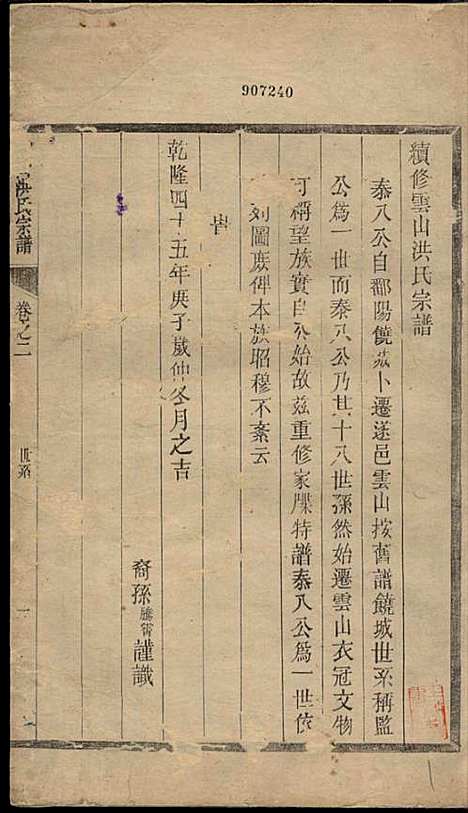 907240
續修雲山洪氏宗譜
泰八公自鄱陽饒茲卜遷遂邑雲山按舊譜饒城世系稱監
公爲一世而泰八公乃其十八世孫然始遷雲山衣冠文物
可稱望族實自公始故茲重修家牒特譜泰八公爲一世依
列圖庶俾本族昭穆不紊云
旹
乾隆四十五年庚子歲仲冬月之吉
裔孫騰霄謹識
洪氏宗譜
卷之二
世系
一